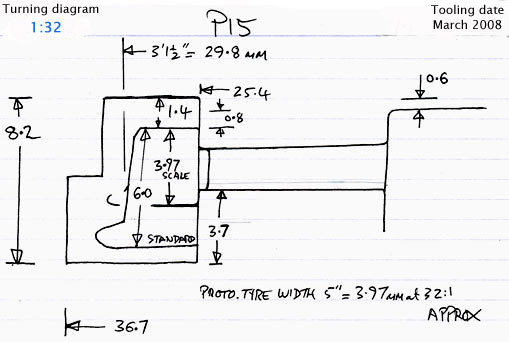 Turning diagram
1:32
P15
Tooling date
March 2008
3'1½"= 29.8 MM
25.4
0.6
1.4
0.8
8.2
3.97
SCALE
6.0
C
3.7
STANDARD
PROTO.TYPE WIDTH 5"= 3.97MM at 32:1
APPROX
36.7